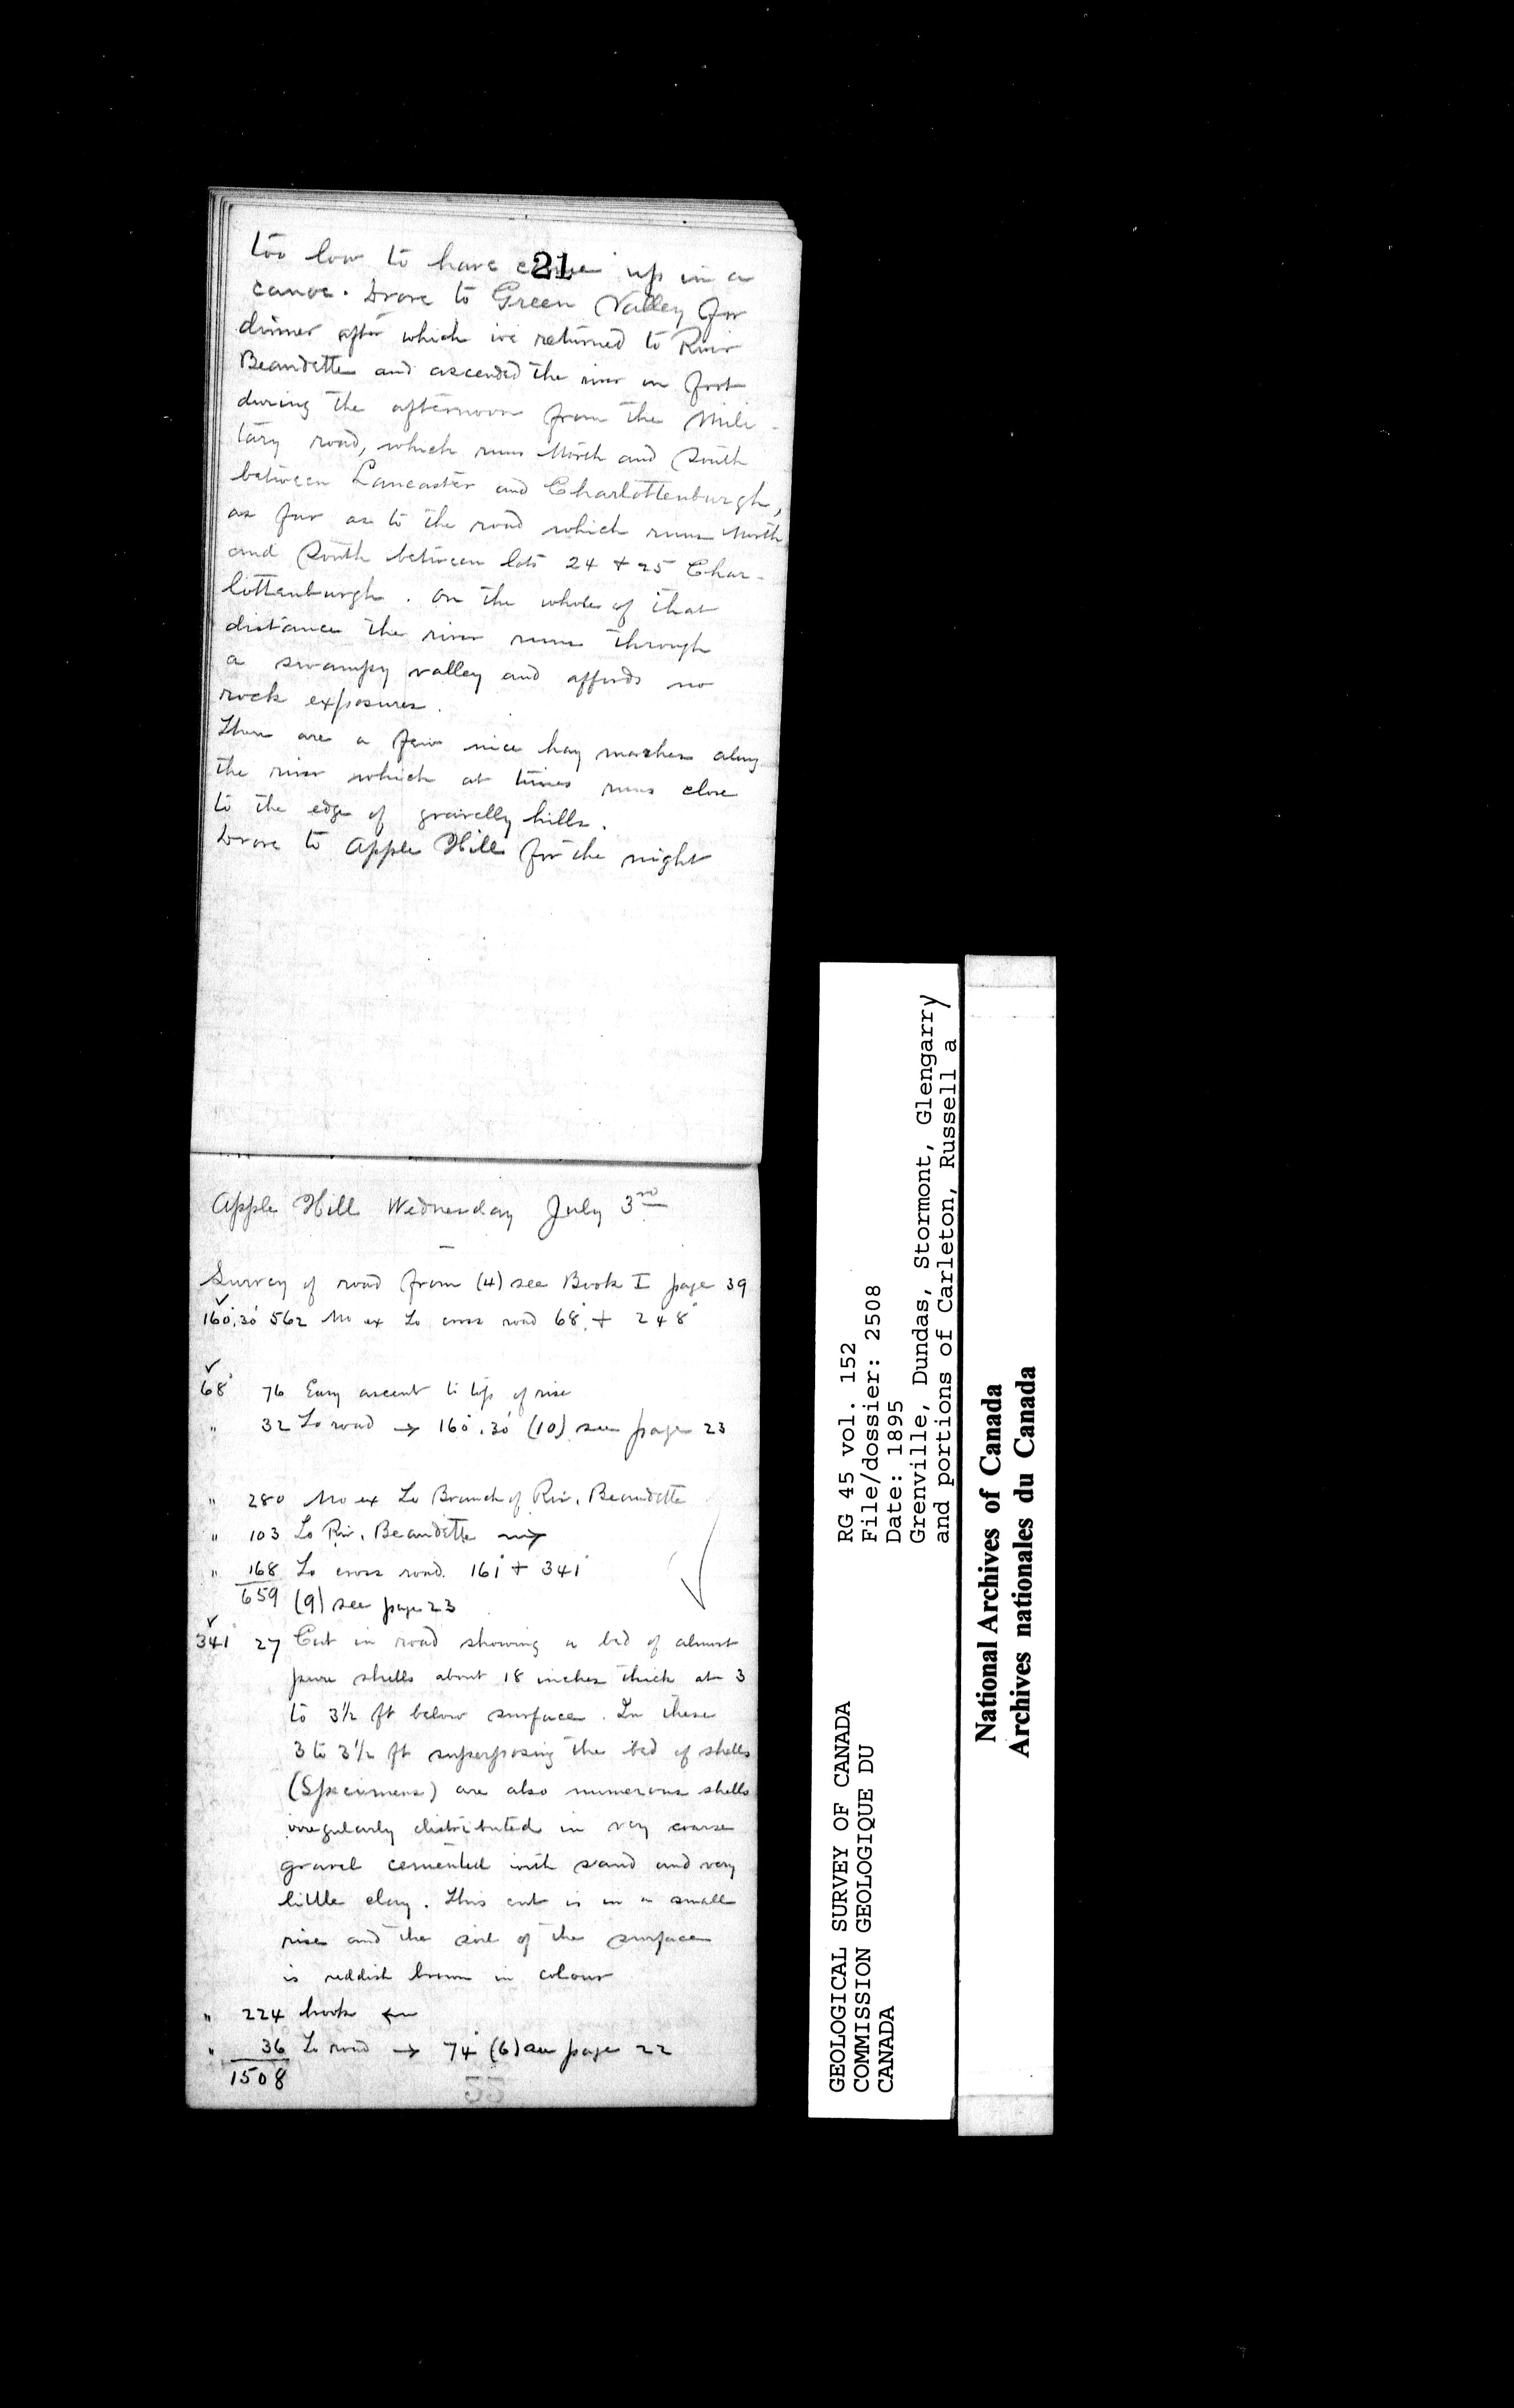 21
too low to have come up in a
canoe. Drove to Green Valley for
dinner after which we returned to River
Beaudette and ascended the river on foot
during the afternoon from the Mili-
tary road, which runs North and South
between Lancaster and Charlottenburgh,
as far as to the road which runs North
and South between lots 24 + 25 Char-
lottenburgh. On the whole of that
distance the river runs through
a swampy valley and affords no
rock exposures.
There are a few nice hay marshes along
the river which at times runs close
to the edge of gravelly hills.
Drove to Apple Hill for the night
Apple Hill Wednesday July 3rd
Survey of road from (4) see Book I page 39
160°.30' 562 No ex To cross road 68° + 248°
68° 76 Easy ascent to top of rise
" 32 To road → 160°.30' (10) see page 23
" 280 No ex To Branch of Riv. Beaudette
" 103 To Riv. Beaudette →
" 168 To cross road 161° + 341°
659 (9) see page 23
341° 27 Cut in road showing a bed of almost
pure shells about 18 inches thick at 3
to 3½ ft below surface. In these
3 to 3½ ft superposing the bed of shells
(Specimens) are also numerous shells
irregularly distributed in very coarse
gravel cemented with sand and very
little clay. This cut is in a small
rise and the soil of the surface
is reddish brown in colour
" 224 brook ←
" 36 To road → 74° (6) see page 22
1508
GEOLOGICAL SURVEY OF CANADA
COMMISSION GEOLOGIQUE DU
CANADA
RG 45 vol. 152
File/dossier: 2508
Date: 1895
Grenville, Dundas, Stormont, Glengarry
and portions of Carleton, Russell a
National Archives of Canada
Archives nationales du Canada